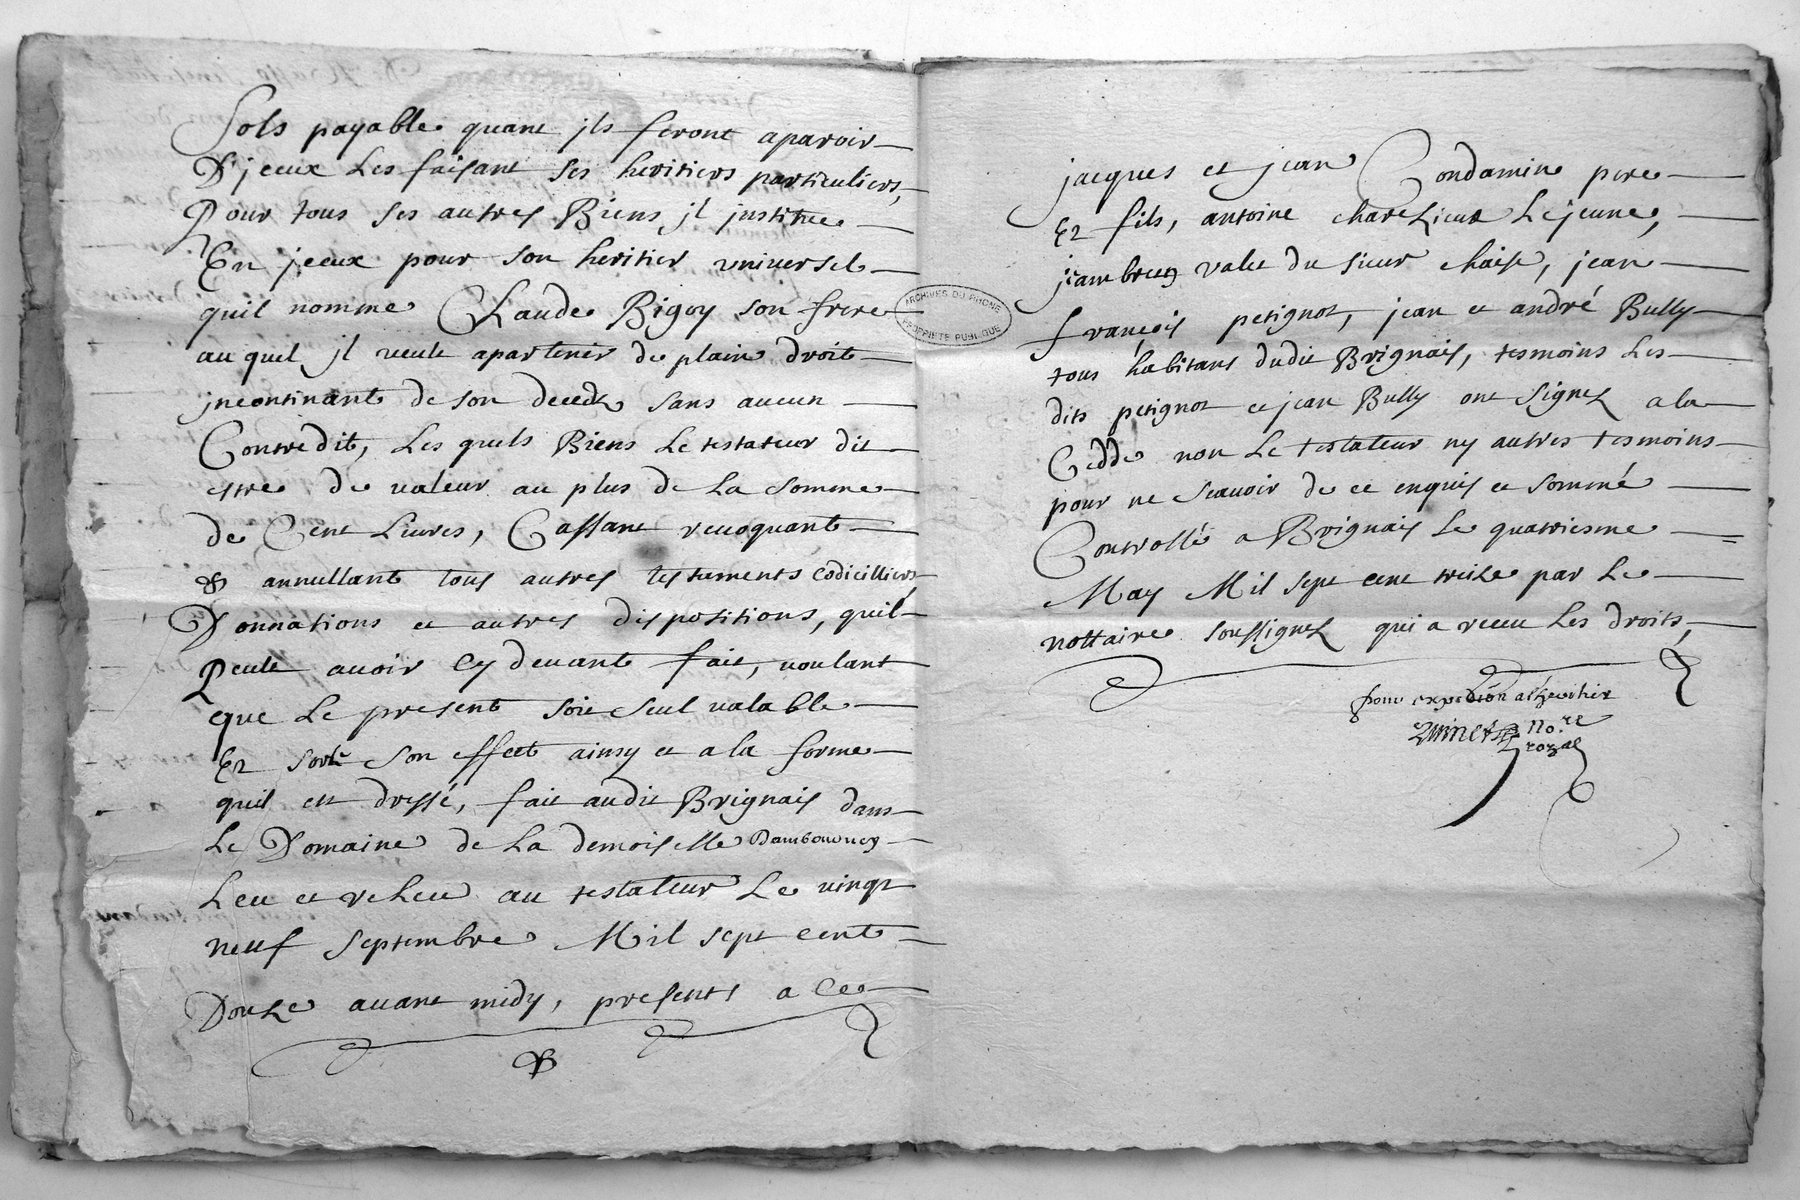 Sols payable quant jls seront aparoir
D'jceux les faisant ses heritiers particuliers,
Pour tous ses autres Biens jl justitue
En jceux pour son heritier vniversel
quil nomme Claude Bigoy son frere
auquel jl veult apartenir de plain droit
jncontinant de son decedz sans aucun
Contredit, Les quels Biens Le testateur dit
estre de valeur au plus de La somme
de Cent Livres, Cassant revoquant
& annullant tous autres testaments codicilliers
Donnations et autres dispositions, quil
Peult auoir Cy deuant fait, voulant
que Le present soit seul valable
Et sorte son effect ainsy et a la forme
quil est dressé, fait audit Brignais dans
Le Domaine de La demoiselle
Leu et releu au testateur Le vingt
neuf septembre Mil sept cent
Douze auant midy, presents a Ce
jacques et jean Condamin pere
Et fils, antoine charezieux Lejeune,
valet du sieur chaise, jean
françois petignot, jean et andré Bully
tous habitans dudit Brignais, tesmoins Les
dits petignot et jean Bully ont signez a la
Cedde non Le testateur ny autres tesmoins
pour ne scauoir de ce enquis et sommé
Controllé a Brignais Le quatriesme
May Mil sept cent treize par Le
nottaire soussignez qui a receu Les droits,
pour expedion a l'heritier
No.re
royal
ARCHIVES DU RHONE
PROPRIETE PUBLIQUE